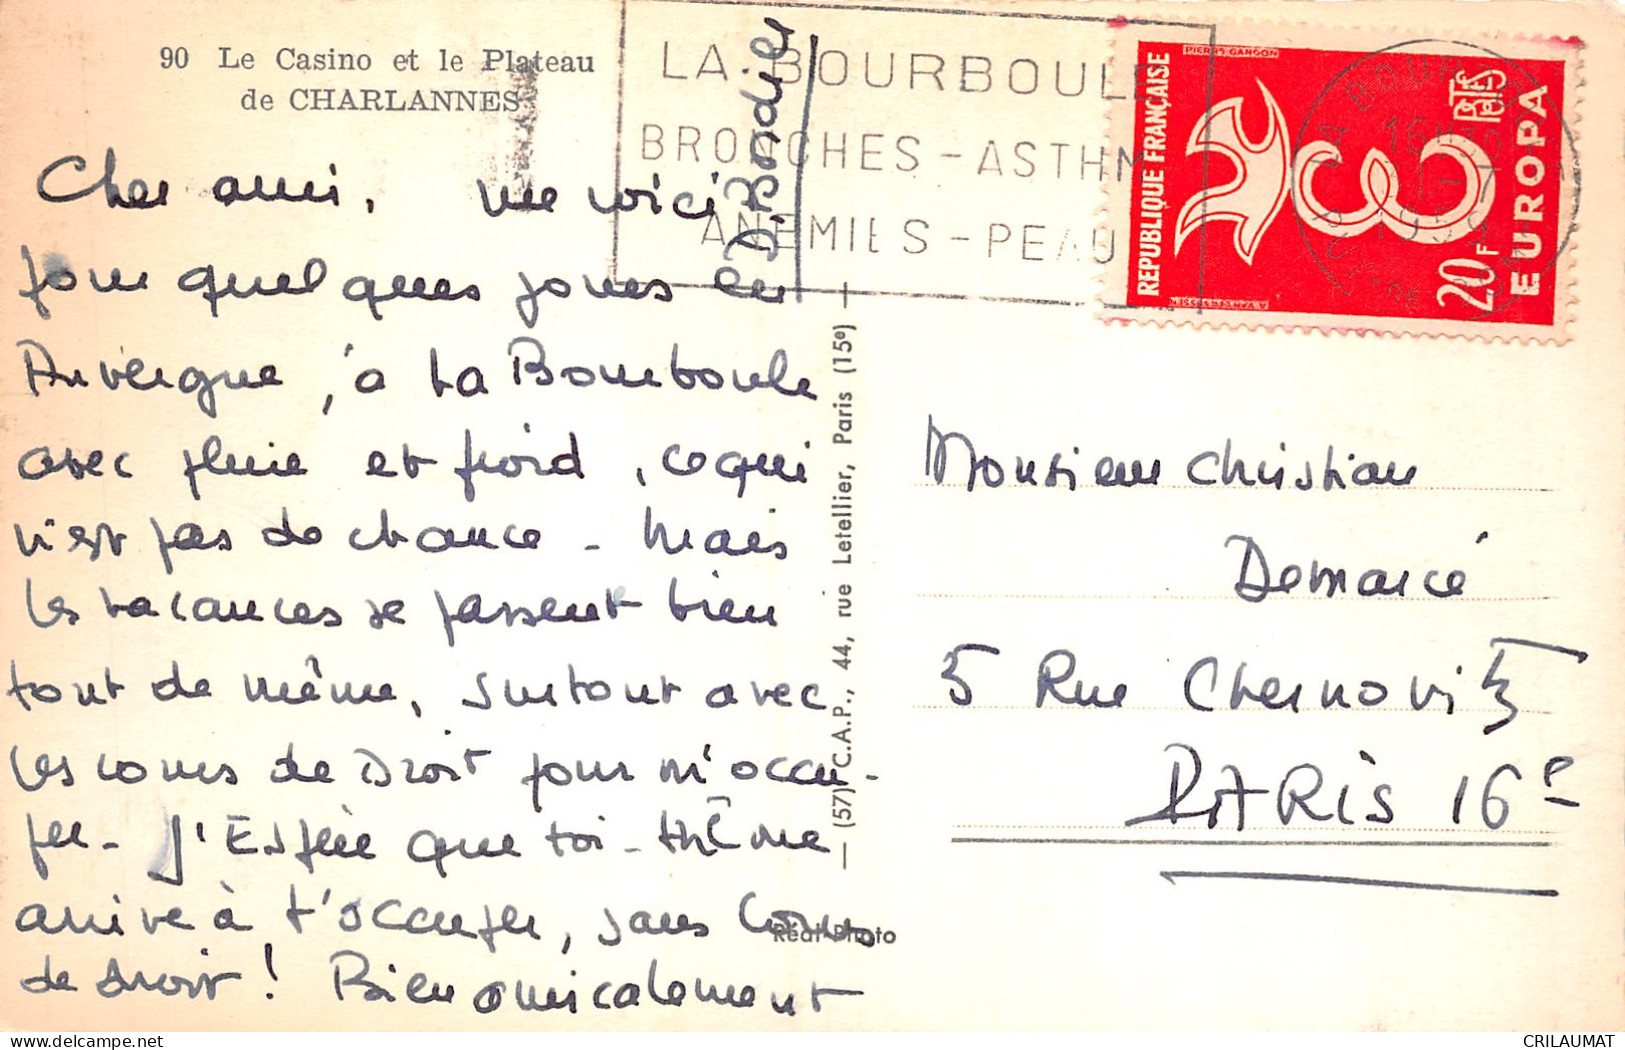 90 Le Casino et le Plateau
de CHARLANNES
LA BOURBOULE
BRONCHES - ASTHM
ANEMIES - PEAU
REPUBLIQUE FRANÇAISE
PIERRE GANDON
EUROPA
20F
16H
1959
Cher ami, me voici
pour quelques jours en
Auvergne, à La Bourboule
avec pluie et froid, ce qui
n'est pas de chance - Mais
les vacances se passent bien
tout de même, surtout avec
les cours de Droit pour m'occu-
per - J'Espère que toi-même
arrive à t'occuper, sans Cours
de droit ! Bien amicalement
D. Bordier
— (57) C.A.P., 44, rue Letellier, Paris (15e) —
Réal-Photo
Monsieur Christian
Demarcé
5 Rue Chernovitz
PARIS 16e
CRILAUMAT